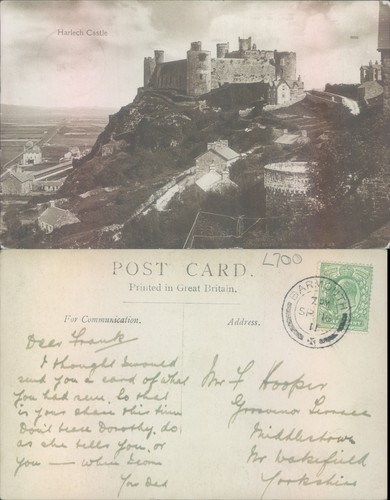 Harlech Castle
L700
POST CARD.
Printed in Great Britain.
For Communication.
Address.
BARMOUTH
SP 16
11
Dear Frank
I thought I would
send you a card of what
you had seen. So that
is your share this time
Don't tease Dorothy, do
as she tells you, or
you — when I come
Your Dad
Mr F Hooper
Grosvenor Terrace
Middlestown
Nr Wakefield
Yorkshire